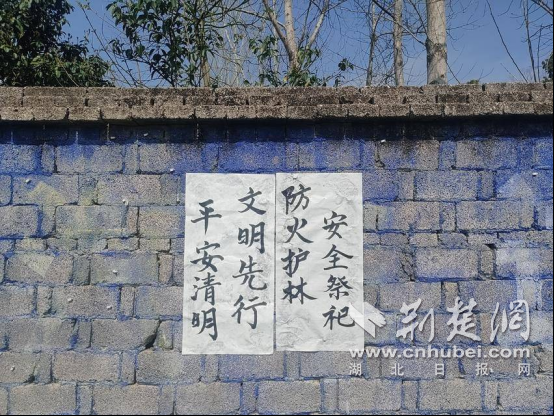 安全祭祀
防火护林
文明先行
平安清明
荆楚网
www.cnhubei.com
湖北日报网